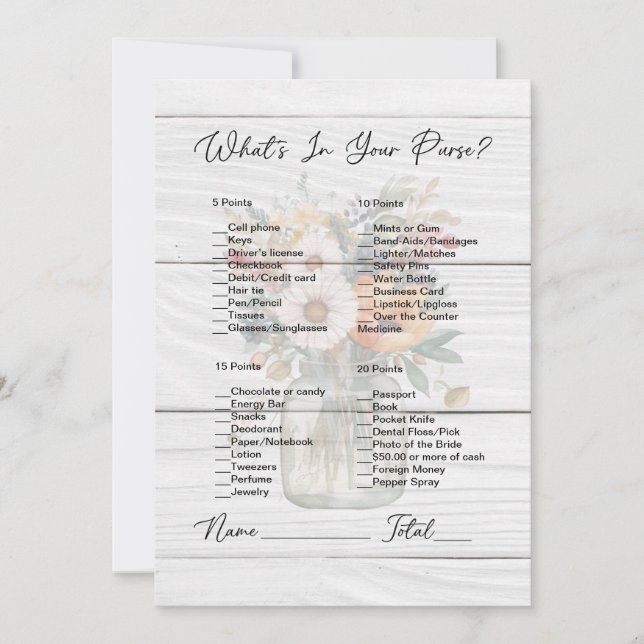 What's In Your Purse?
5 Points
___Cell phone
___Keys
___Driver's license
___Checkbook
___Debit/Credit card
___Hair tie
___Pen/Pencil
___Tissues
___Glasses/Sunglasses
10 Points
___Mints or Gum
___Band-Aids/Bandages
___Lighter/Matches
___Safety Pins
___Water Bottle
___Business Card
___Lipstick/Lipgloss
___Over the Counter
Medicine
15 Points
___Chocolate or candy
___Energy Bar
___Snacks
___Deodorant
___Paper/Notebook
___Lotion
___Tweezers
___Perfume
___Jewelry
20 Points
___Passport
___Book
___Pocket Knife
___Dental Floss/Pick
___Photo of the Bride
___$50.00 or more of cash
___Foreign Money
___Pepper Spray
Name____________ Total____